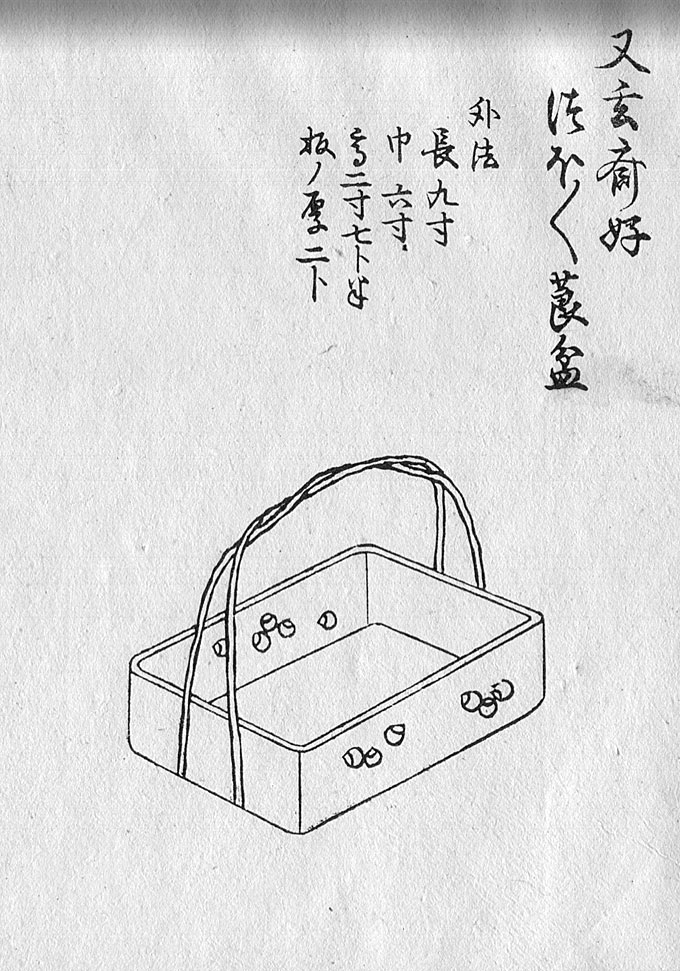 又玄斎好
つぼ〱莨盆
外法
長九寸
巾六寸
高二寸七卜半
板ノ厚二卜